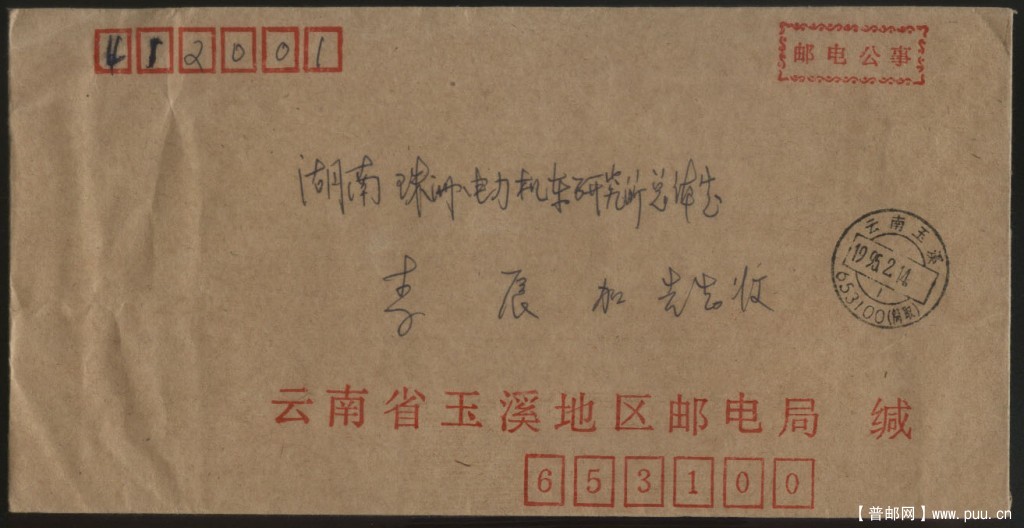 412001
邮电公事
湖南株洲电力机车研究所总体室
李辰加先生收
云南玉溪
1995.2.14.
1
653100(侷取)
云南省玉溪地区邮电局 缄
653100
【普邮网】www.puu.cn